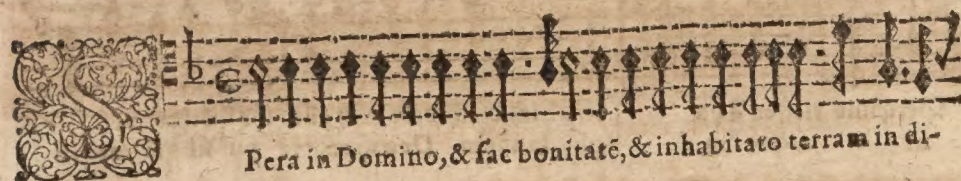 SPera in Domino, & fac bonitatē, & inhabitato terram in di-